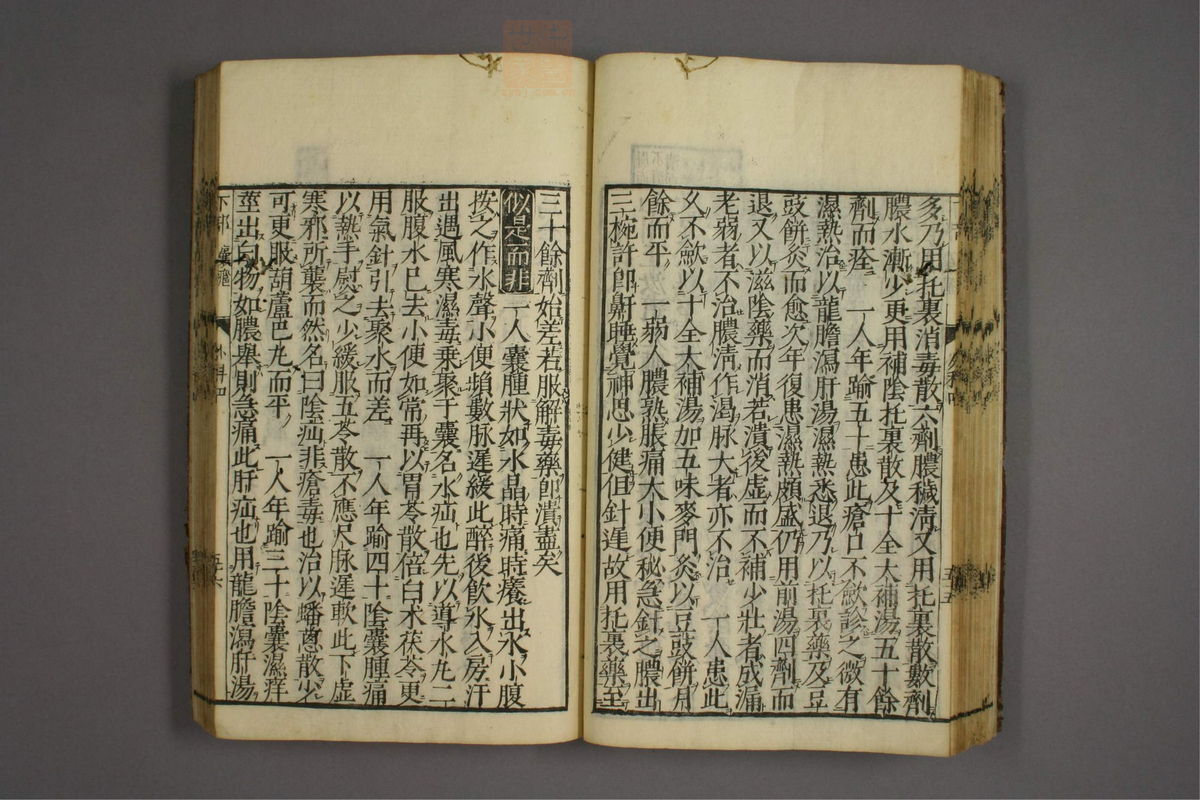 多乃用托裏消毒散六劑膿穢清又用托裏散數劑
膿水漸少更用補陰托裏散及十全大補湯五十餘
劑而痊　一人年踰五十患此瘡口不歛診之微有
濕熱治以龍膽瀉肝湯濕熱悉退乃以托裏藥及豆
豉餅灸而愈次年復患濕熱頗盛仍用前湯四劑而
退又以滋陰藥而消若潰後虚而不補少壯者成漏
老弱者不治膿清作渴脉大者亦不治　一人患此
久不歛以十全大補湯加五味麥門灸以豆豉餅月
餘而平　一弱人膿熟脹痛大小便秘急針之膿出
三椀許即鼾睡覺神思少健但針遲故用托裏藥至
三十餘劑始差若服解毒藥即潰盡矣
似是而非　一人囊腫狀如水晶時痛時癢出水小腹
按之作水聲小便頻數脉遲緩此醉後飲水入房汗
出遇風寒濕毒乘聚于囊名水疝也先以導水丸二
服腹水已去小便如常再以胃苓散倍白朮茯苓更
用氣針引去聚水而差　一人年踰四十陰囊腫痛
以熱手慰之少緩服五苓散不應尺脉遲軟此下虚
寒邪所襲而然名曰陰疝非瘡毒也治以蟠蔥散少
可更服胡蘆巴丸而平　一人年踰三十陰囊濕痒
莖出白物如膿舉則急痛此肝疝也用龍膽瀉肝湯
下部　囊癰　外科四　五六